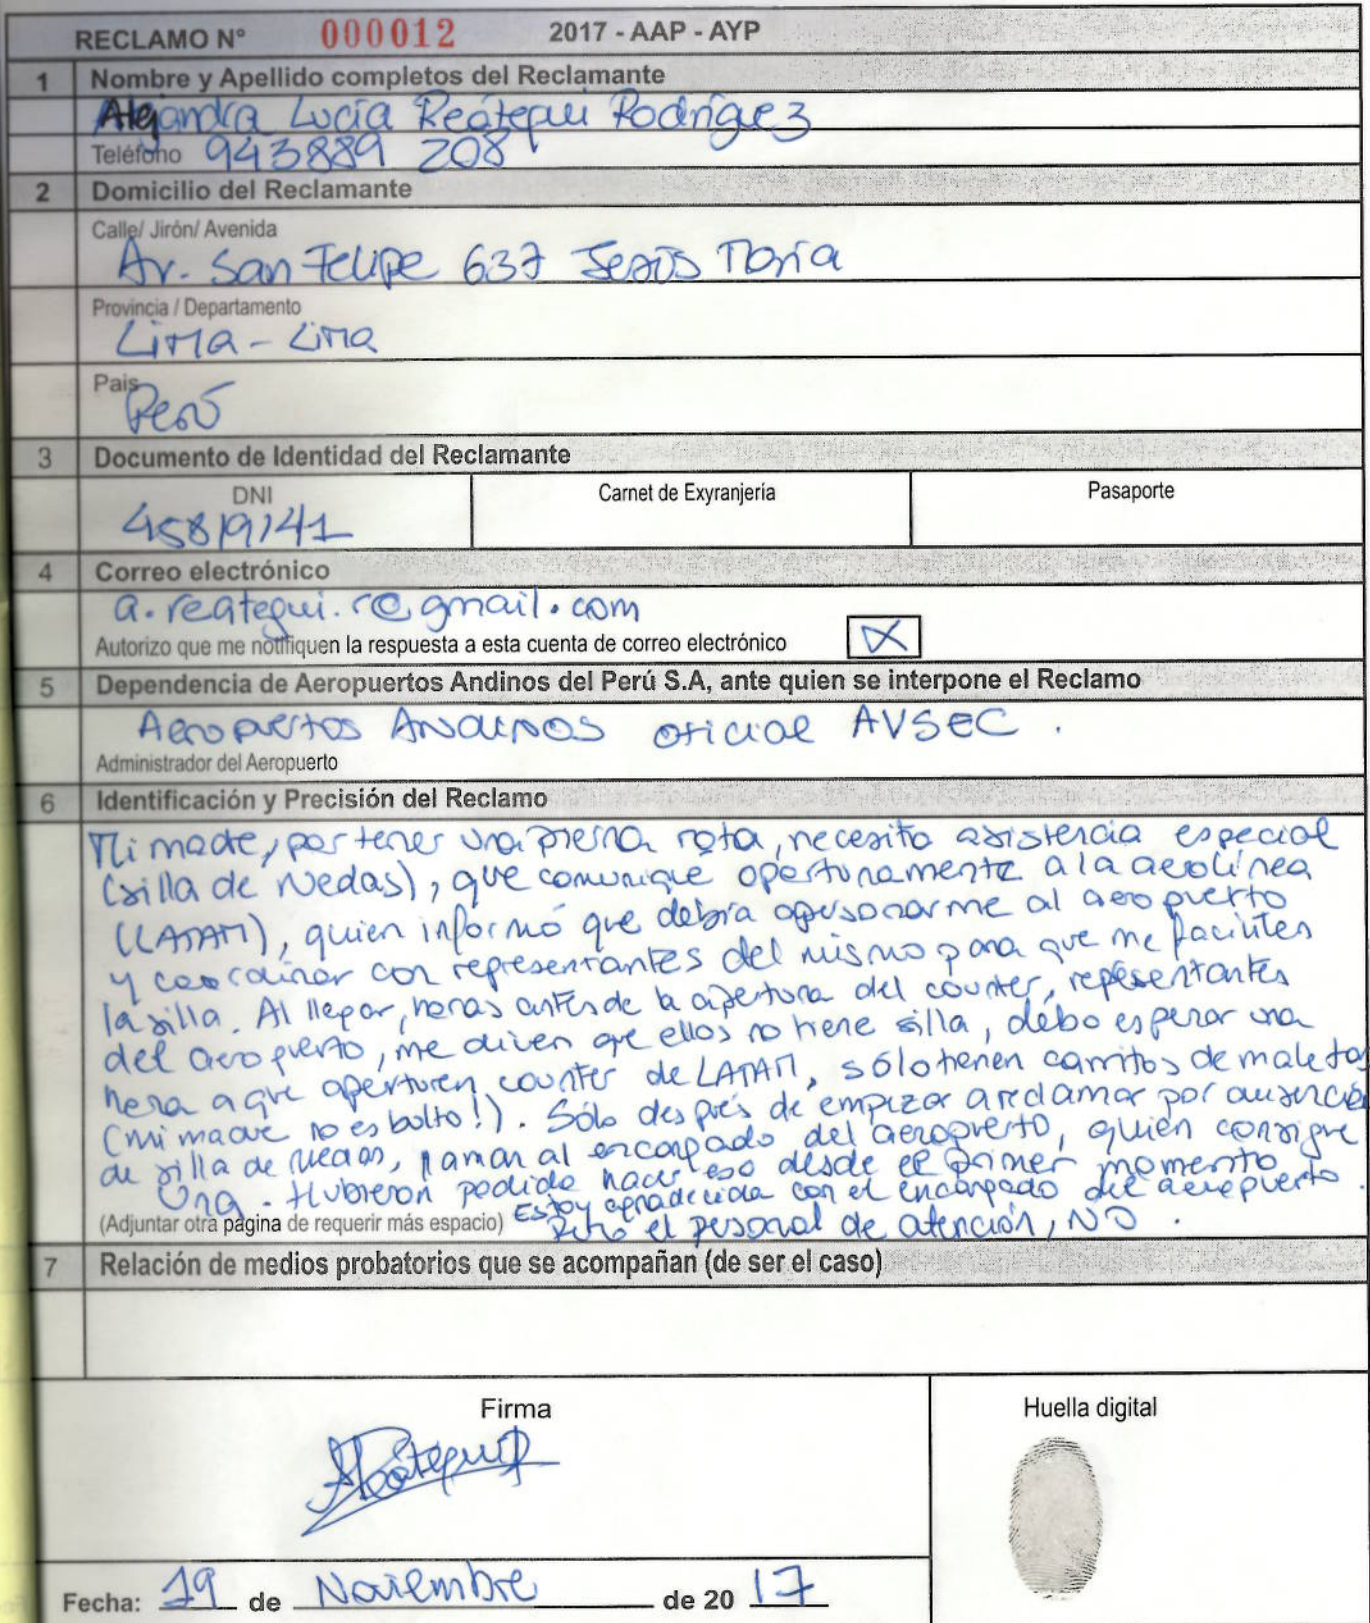 RECLAMO N° 000012 2017 - AAP - AYP
1 Nombre y Apellido completos del Reclamante
Alejandra Lucía Reátegui Rodríguez
Teléfono 943889 208
2 Domicilio del Reclamante
Calle/ Jirón/ Avenida
Av. San Felipe 637 Jesús María
Provincia / Departamento
Lima - Lima
Pais
Perú
3 Documento de Identidad del Reclamante
DNI Carnet de Exyranjeria Pasaporte
45819141
4 Correo electrónico
a.reategui.r@gmail.com
Autorizo que me notifiquen la respuesta a esta cuenta de correo electrónico X
5 Dependencia de Aeropuertos Andinos del Perú S.A, ante quien se interpone el Reclamo
Aeropuertos Andinos oficial AVSEC .
Administrador del Aeropuerto
6 Identificación y Precisión del Reclamo
Mi madre, por tener una pierna rota, necesita asistencia especial
(silla de ruedas), que comunique oportunamente a la aerolínea
(LATAM), quien informó que debía apersonarme al aeropuerto
y coordinar con representantes del mismo para que me faciliten
la silla. Al llegar, horas antes de la apertura del counter, representantes
del aeropuerto, me dicen que ellos no tiene silla, debo esperar una
hora a que aperturen counter de LATAM, sólo tienen carritos de maletas
(mi madre no es bulto!). Sólo después de empezar a reclamar por ausencia
de silla de ruedas, llaman al encargado del aeropuerto, quien consigue
una. Hubieron podido hacer eso desde el primer momento.
Estoy agradecida con el encargado del aeropuerto.
(Adjuntar otra página de requerir más espacio) Pero el personal de atención, NO .
7 Relación de medios probatorios que se acompañan (de ser el caso)
Firma Huella digital
AReáteguiR
Fecha: 19 de Noviembre de 20 17